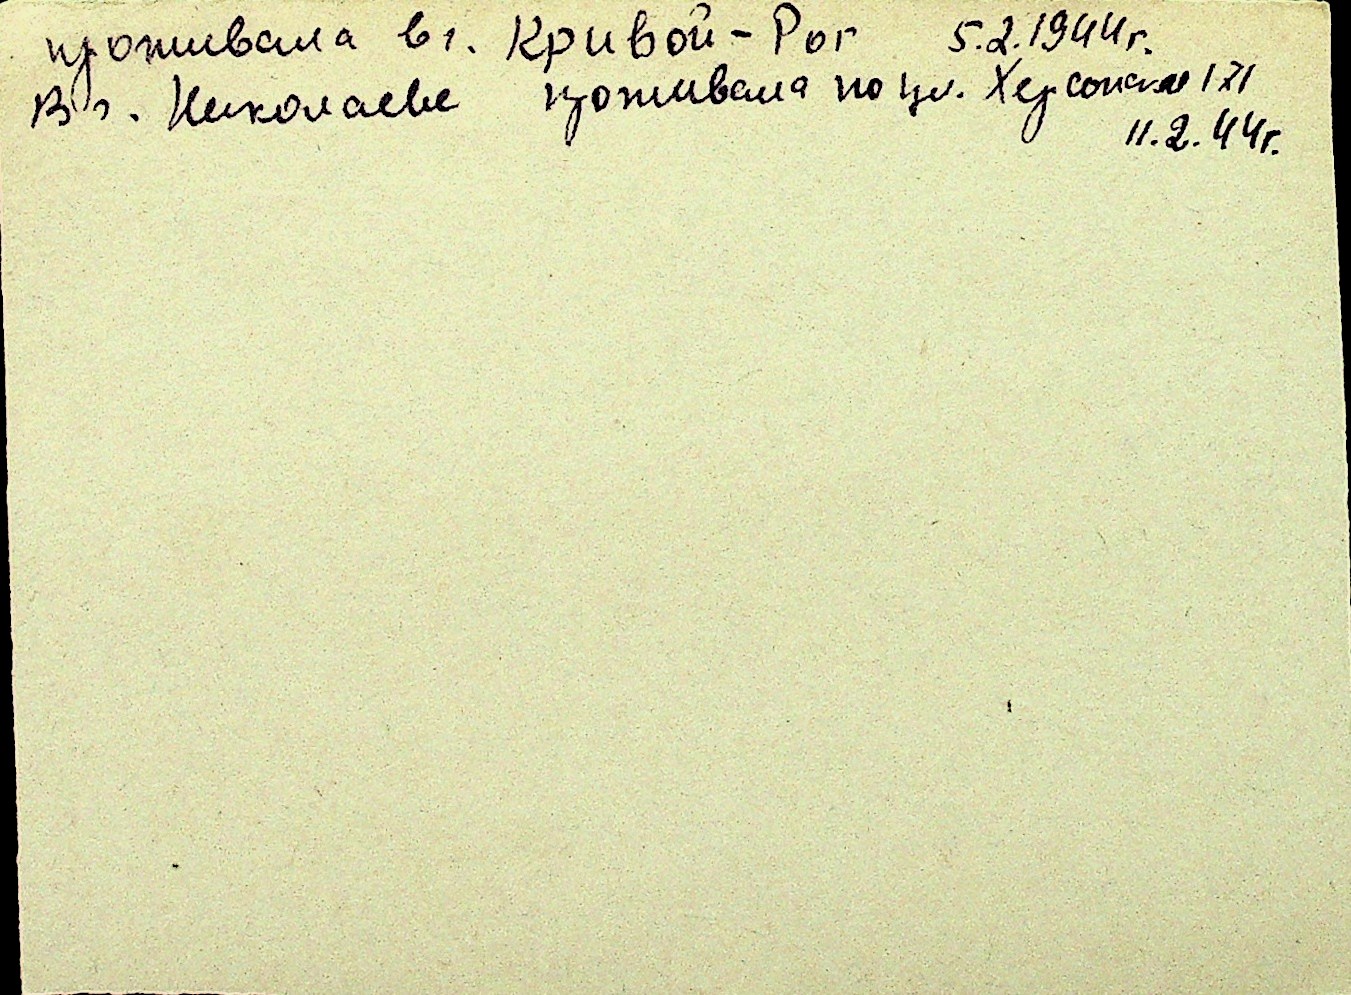 проживала в г. Кривой-Рог 5.2.1944г.
В г. Николаеве проживала по ул. Херсонская 171
11.2.44г.